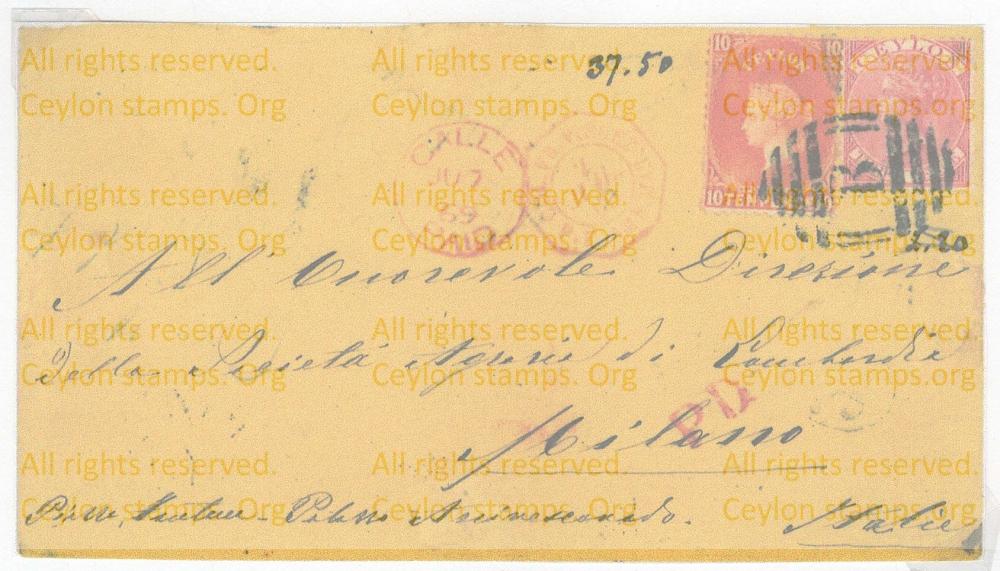 All rights reserved. All rights reserved. All rights reserved.
Ceylon stamps. Org Ceylon stamps. Org Ceylon stamps. Org
37.50
10 10
CEYLON
10 TEN
GALLE
JU 7
69
PAID
B
2.20
All rights reserved. All rights reserved. All rights reserved.
Ceylon stamps. Org Ceylon stamps. Org Ceylon stamps. Org
All' Onorevole Direzione
della Società Agraria di Lombardia
PD
Milano
All rights reserved. All rights reserved. All rights reserved.
Ceylon stamps. Org Ceylon stamps. Org Ceylon stamps. Org
All rights reserved. All rights reserved. All rights reserved.
Ceylon stamps. Org Ceylon stamps. Org Ceylon stamps. Org
Italie